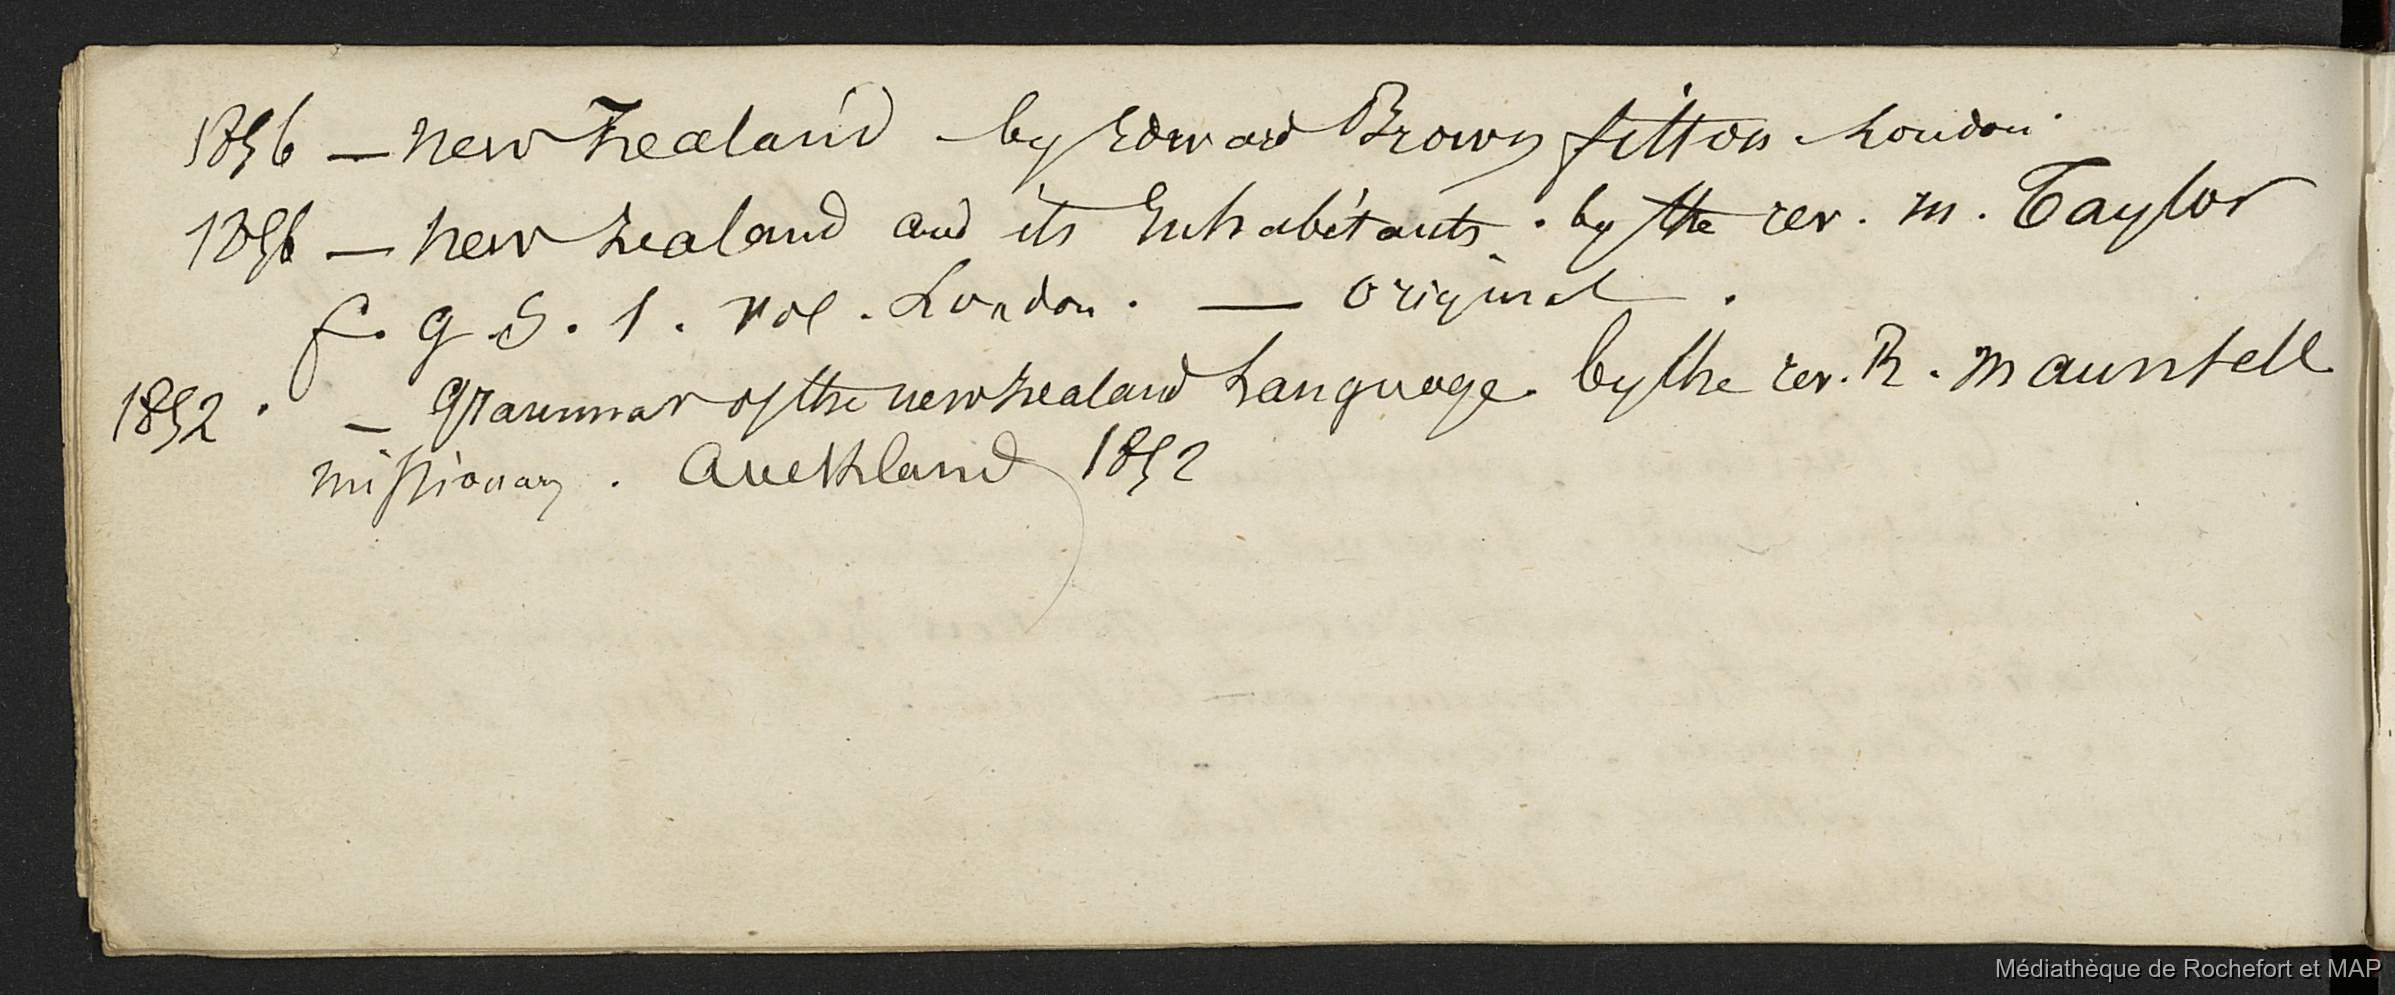 1856 — New Zealand by Edward Brown fitton London.
1856 — New Zealand and its Inhabitants. by the rev. M. Taylor
f. g. S. 1. vol. London. — original.
1852. — Grammar of the new Zealand Language by the rev. R. Maunsell
missionary. Auckland 1852
Médiathèque de Rochefort et MAP